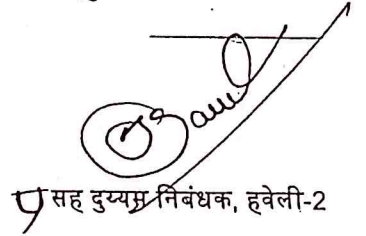 सह दुय्यम निबंधक, हवेली-2